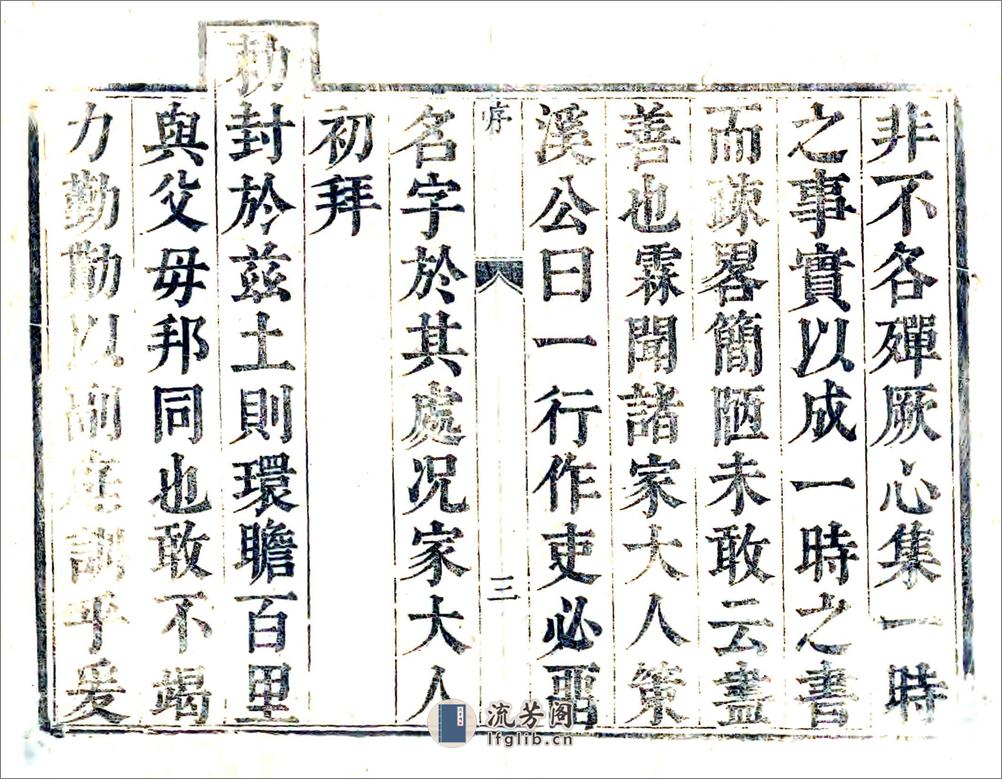 非不各殫厥心集一時
之事實以成一時之書
而疎畧簡陋未敢云盡
善也霖聞諸家大人策
溪公曰一行作吏必畱
序 三
名字於其處况家大人
初拜
勅封於兹土則環瞻百里
與父毋邦同也敢不竭
力勤勤以副庭訓乎爰
流芳阁
lfglib.cn